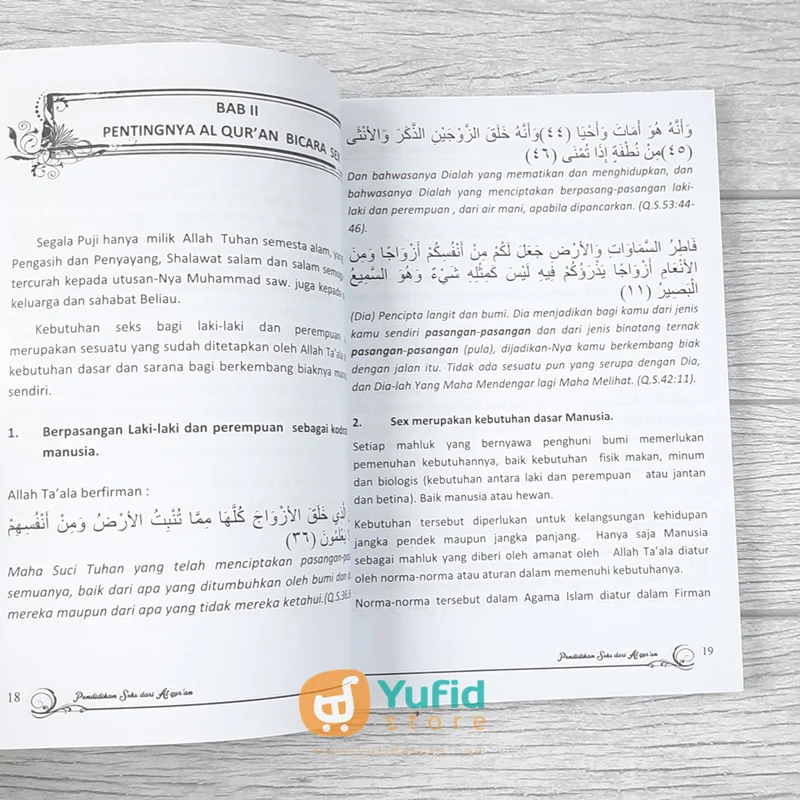 BAB II
PENTINGNYA AL QUR'AN BICARA SEX
Segala Puji hanya milik Allah Tuhan semesta alam, yang
Pengasih dan Penyayang, Shalawat salam dan salam semoga
tercurah kepada utusan-Nya Muhammad saw. juga kepada
keluarga dan sahabat Beliau.
Kebutuhan seks bagi laki-laki dan perempuan
merupakan sesuatu yang sudah ditetapkan oleh Allah Ta'ala
kebutuhan dasar dan sarana bagi berkembang biaknya
sendiri.
1. Berpasangan Laki-laki dan perempuan sebagai
manusia.
Allah Ta'ala berfirman :
الَّذِي خَلَقَ الأَزْوَاجَ كُلَّهَا مِمَّا تُنْبِتُ الأَرْضُ وَمِنْ أَنْفُسِهِمْ
يَعْلَمُونَ (٣٦)
Maha Suci Tuhan yang telah menciptakan
semuanya, baik dari apa yang ditumbuhkan oleh bumi dan
mereka maupun dari apa yang tidak mereka ketahui.
18
Pendidikan Seks dari Al qur'an
وَأَنَّهُ هُوَ أَمَاتَ وَأَحْيَا (٤٤)وَأَنَّهُ خَلَقَ الزَّوْجَيْنِ الذَّكَرَ وَالأُنْثَى
(٤٥)مِنْ نُطْفَةٍ إِذَا تُمْنَى (٤٦)
Dan bahwasanya Dialah yang mematikan dan menghidupkan, dan
bahwasanya Dialah yang menciptakan berpasang-pasangan laki-
laki dan perempuan , dari air mani, apabila dipancarkan. (Q.S.53:44-
46).
فَاطِرُ السَّمَاوَاتِ وَالأَرْضِ جَعَلَ لَكُمْ مِنْ أَنْفُسِكُمْ أَزْوَاجًا وَمِنَ
الأَنْعَامِ أَزْوَاجًا يَذْرَؤُكُمْ فِيهِ لَيْسَ كَمِثْلِهِ شَيْءٌ وَهُوَ السَّمِيعُ
الْبَصِيرُ (١١)
(Dia) Pencipta langit dan bumi. Dia menjadikan bagi kamu dari jenis
kamu sendiri pasangan-pasangan dan dari jenis binatang ternak
pasangan-pasangan (pula), dijadikan-Nya kamu berkembang biak
dengan jalan itu. Tidak ada sesuatu pun yang serupa dengan Dia,
dan Dia-lah Yang Maha Mendengar lagi Maha Melihat. (Q.S.42:11).
2. Sex merupakan kebutuhan dasar Manusia.
Setiap mahluk yang bernyawa penghuni bumi memerlukan
pemenuhan kebutuhannya, baik kebutuhan fisik makan, minum
dan biologis (kebutuhan antara laki dan perempuan atau jantan
dan betina). Baik manusia atau hewan.
Kebutuhan tersebut diperlukan untuk kelangsungan kehidupan
jangka pendek maupun jangka panjang. Hanya saja Manusia
sebagai mahluk yang diberi oleh amanat oleh Allah Ta'ala diatur
oleh norma-norma atau aturan dalam memenuhi kebutuhanya.
Norma-norma tersebut dalam Agama Islam diatur dalam Firman
Pendidikan Seks dari Al qur'an
19
Yufid
store